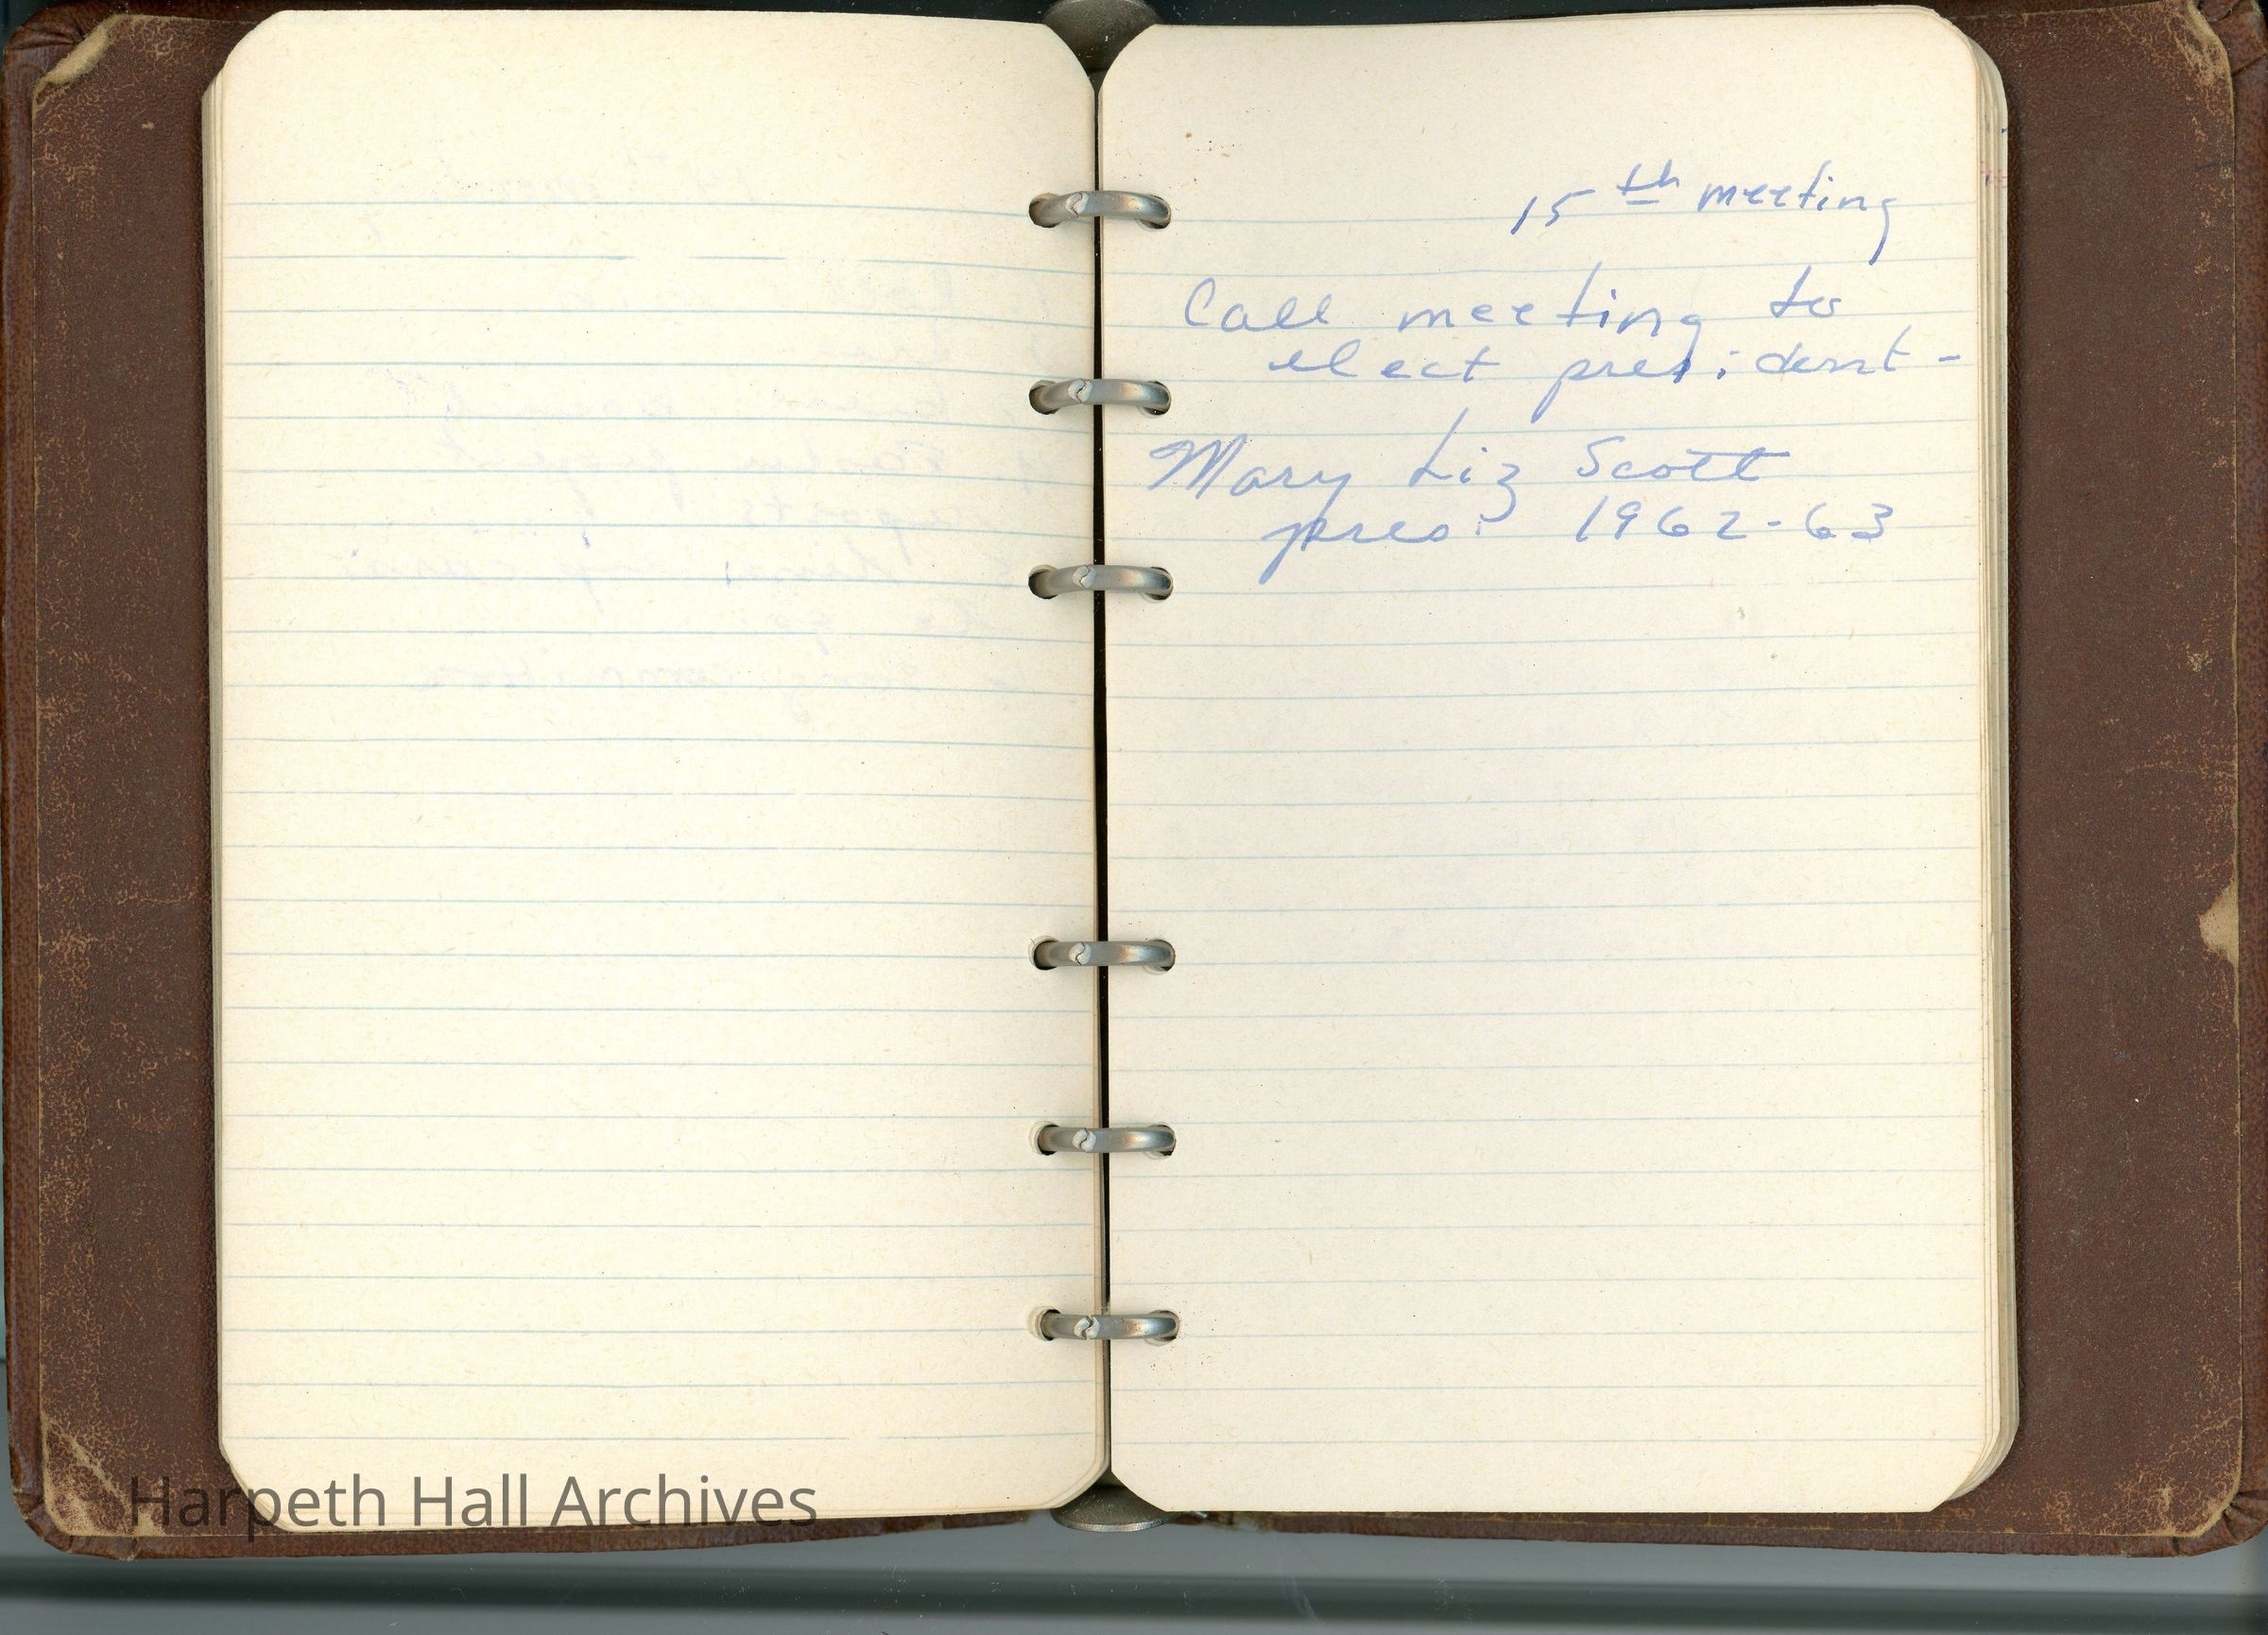 15th meeting
Call meeting to
elect president -
Mary Liz Scott
pres. 1962-63
Harpeth Hall Archives